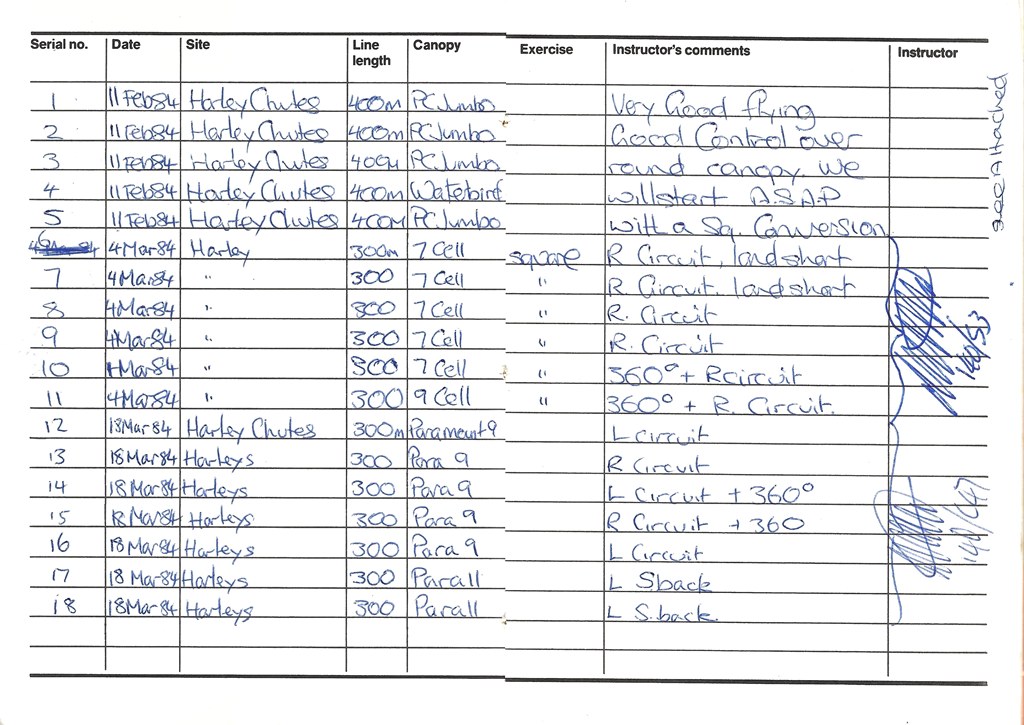 Serial no. Date Site Line length Canopy Exercise Instructor's comments Instructor
1 11 Feb 84 Harley Chutes 400m PC Jumbo Very Good flying
2 11 Feb 84 Harley Chutes 400m PC Jumbo Good Control over
3 11 Feb 84 Harley Chutes 400m PC Jumbo round canopy. we
4 11 Feb 84 Harley Chutes 400m Waterbird will start A.S.A.P
5 11 Feb 84 Harley Chutes 400M PC Jumbo with a Sq. Conversion
6 4 Mar 84 Harley 300m 7 Cell square R Circuit, land short
7 4 Mar 84 " 300 7 Cell " R Circuit. land short
8 4 Mar 84 " 300 7 Cell " R. Circuit
9 4 Mar 84 " 300 7 Cell " R. Circuit
10 4 Mar 84 " 300 7 Cell " 360° + R circuit
11 4 Mar 84 " 300 9 Cell " 360° + R. Circuit.
12 18 Mar 84 Harley Chutes 300m Paramount 9 L circuit
13 18 Mar 84 Harleys 300 Para 9 R Circuit
14 18 Mar 84 Harleys 300 Para 9 L Circuit + 360°
15 18 Mar 84 Harleys 300 Para 9 R Circuit + 360
16 18 Mar 84 Harleys 300 Para 9 L Circuit
17 18 Mar 84 Harleys 300 Para 11 L S back
18 18 Mar 84 Harleys 300 Para 11 L S. back.
Attached